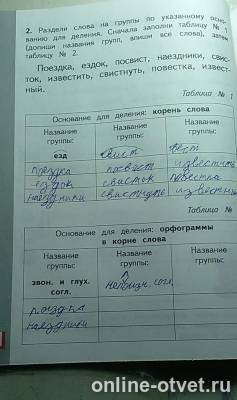 2. Раздели слова на группы по указанному осно-
ванию для деления. Сначала заполни таблицу № 1
(допиши названия групп, впиши все слова), затем
таблицу № 2.
Поездка, ездок, посвист, наездники, свис-
ток, известить, свистнуть, повестка, извест-
ный.
Таблица № 1
Основание для деления: корень слова
Название группы: Название группы: Название группы:
езд свист вест
поездка посвист известить
ездок свисток повестка
наездники свистнуть известный
Таблица №
Основание для деления: орфограммы
в корне слова
Название группы: Название группы: Название группы:
звон. и глух. согл. непроизн. согл.
поездка
наездники
online-otvet.ru